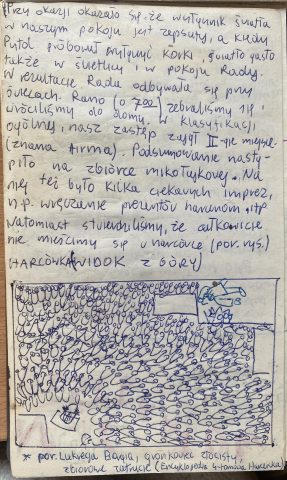 Przy okazji okazało się że włącznik światła
w naszym pokoju jest zepsuty, a kiedy
Pytol próbował wyłączyć korki, światło gasło
także w świetlicy i w pokoju Rady.
W rezultacie Rada odbywała się przy
świecach. Rano (o 7 00) zebraliśmy się i
wróciliśmy do domu. W klasyfikacji
ogólnej, nasz zastęp zajął II-gie miejsce
(znana firma). Podsumowanie nastą-
piło na zbiórce mikołajkowej. Na
niej też było kilka ciekawych imprez,
np. wręczenie prezentów harcerzom, itp.
Natomiast stwierdziliśmy, że całkowicie
nie mieścimy się w harcówce (por. rys.)
HARCÓWKA (WIDOK Z GÓRY)
* por. Lukrecja Borgia, gronkowiec złocisty,
zbiorowe zatrucie (Encyklopedia 4-tomowa